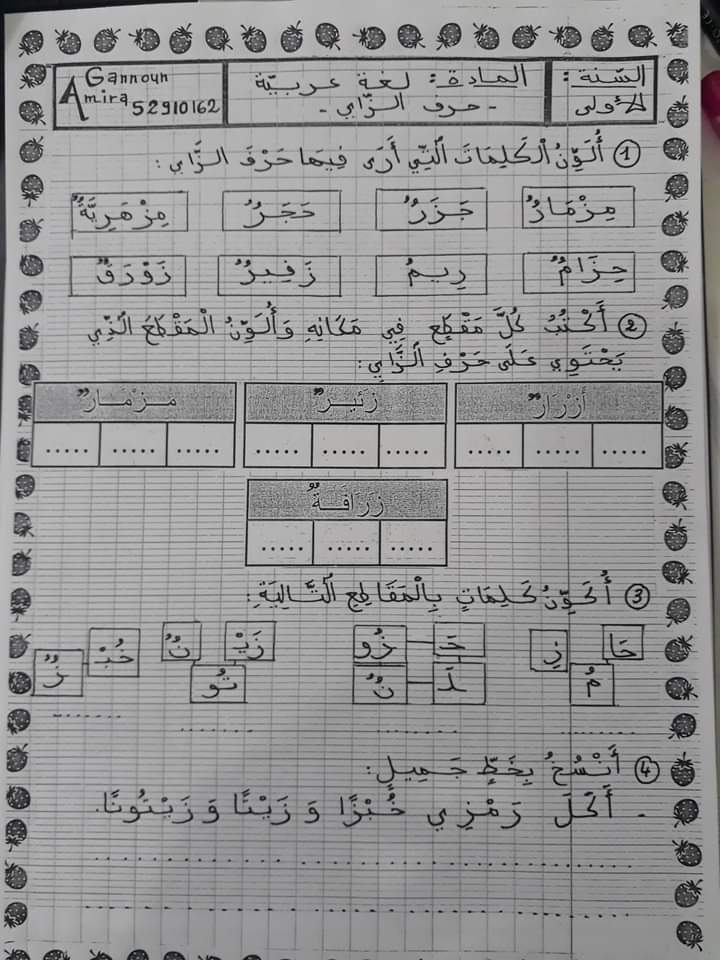 السّنة: المادة: لغة عربيّة Gannoun
الأولى - حرف الزّاي - Amira 52910162
① أُلَوِّنُ الْكَلِمَاتَ الّتِي أَرَى فِيهَا حَرْفَ الزَّاي :
مِزْمَارٌ جَزَرٌ حَجَرٌ مِزْهَرِيَّةٌ
حِزَامٌ رِيمٌ زَفِيرٌ زَوْرَقٌ
② أَكْتُبُ كُلَّ مَقْطَعٍ فِي مَكَانِهِ وَأُلَوِّنُ الْمَقْطَعَ الّذِي
يَحْتَوِي عَلَى حَرْفِ الزَّاي:
أَزْرَارٌ زَئِيرٌ مِـزْمَـارٌ
..... ..... ..... ..... ..... ..... ..... ..... .....
زَرَافَـةٌ
..... ..... .....
③ أُكَوِّنُ كَلِمَاتٍ بِالْمَقَاطِعِ التَّالِيَةِ:
حَا زِ حَـ زُو زَيْـ نٌ خُبْـ زٌ
مٌ لَـ نٌ تُو
④ أَنْسُخُ بِخَطٍّ جَمِيلٍ:
- أَكَلَ رَمْزِي خُبْزًا وَ زَيْتًا وَ زَيْتُونًا.